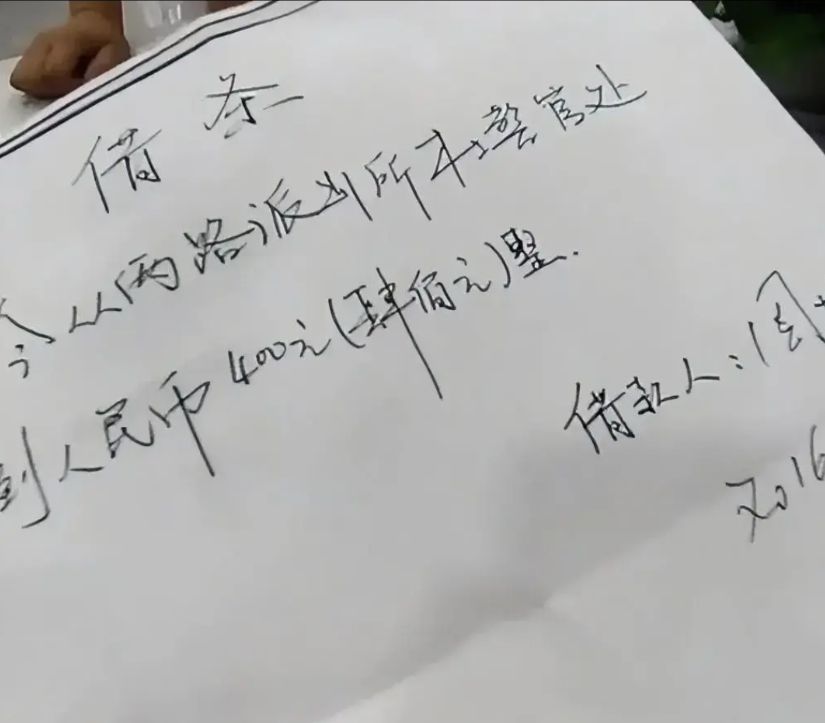 借条
今从两路派出所王警官处
到人民币400元(肆佰元)整.
借款人:周
2016